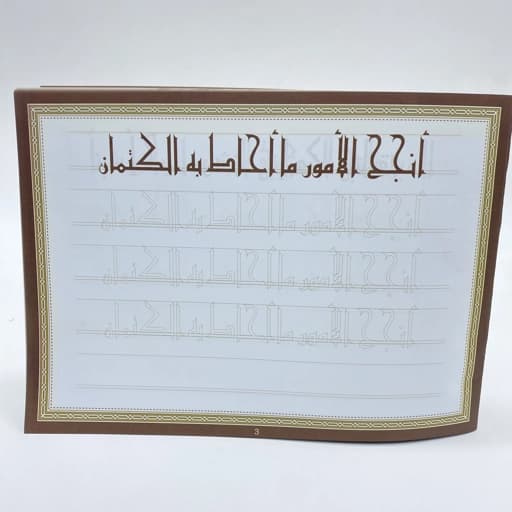 أنجح الأمور ما أحاط به الكتمان
أنجح الأمور ما أحاط به الكتمان
أنجح الأمور ما أحاط به الكتمان
أنجح الأمور ما أحاط به الكتمان
3